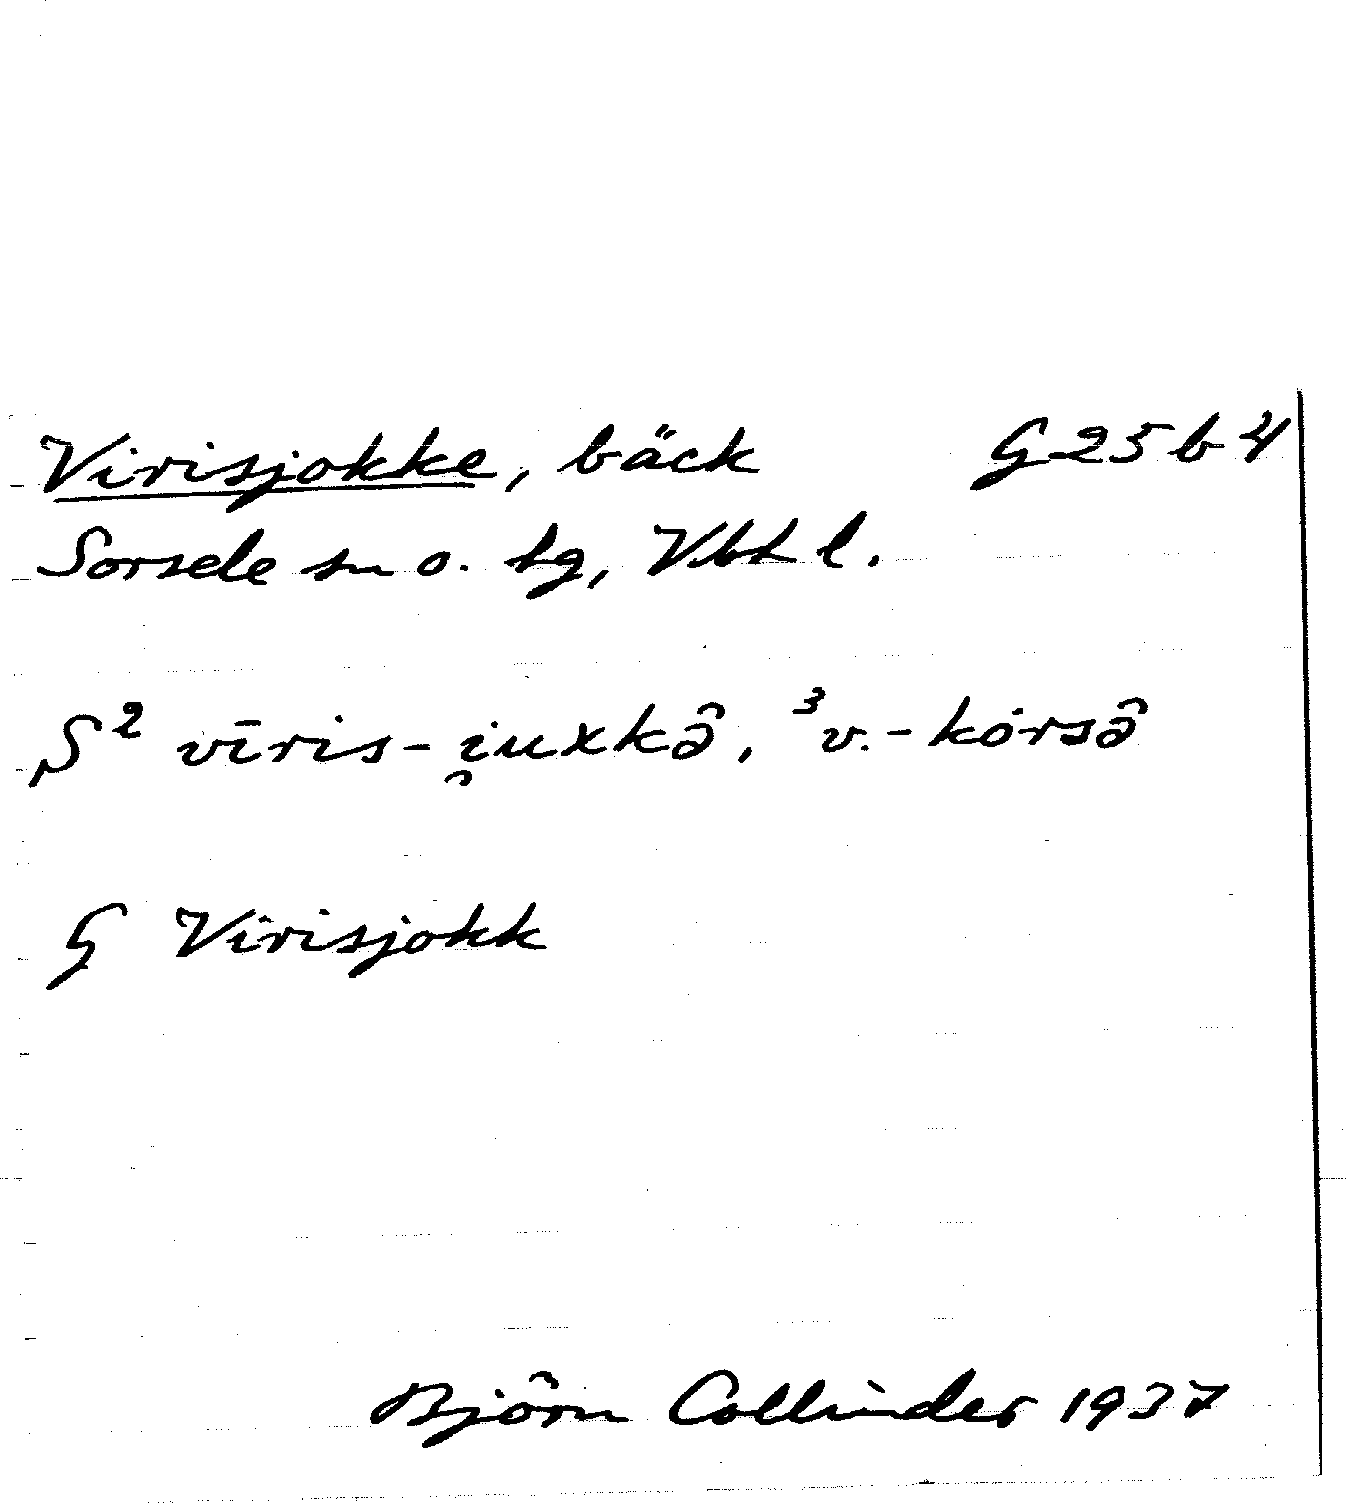 Virisjokke, bäck G 25 b 4
Sorsele sn o. tg, Vbtl.
S² vīris-i̯uxkə̑, ³v.-kòrsə̑
G Virisjokk
Björn Collinder 1937